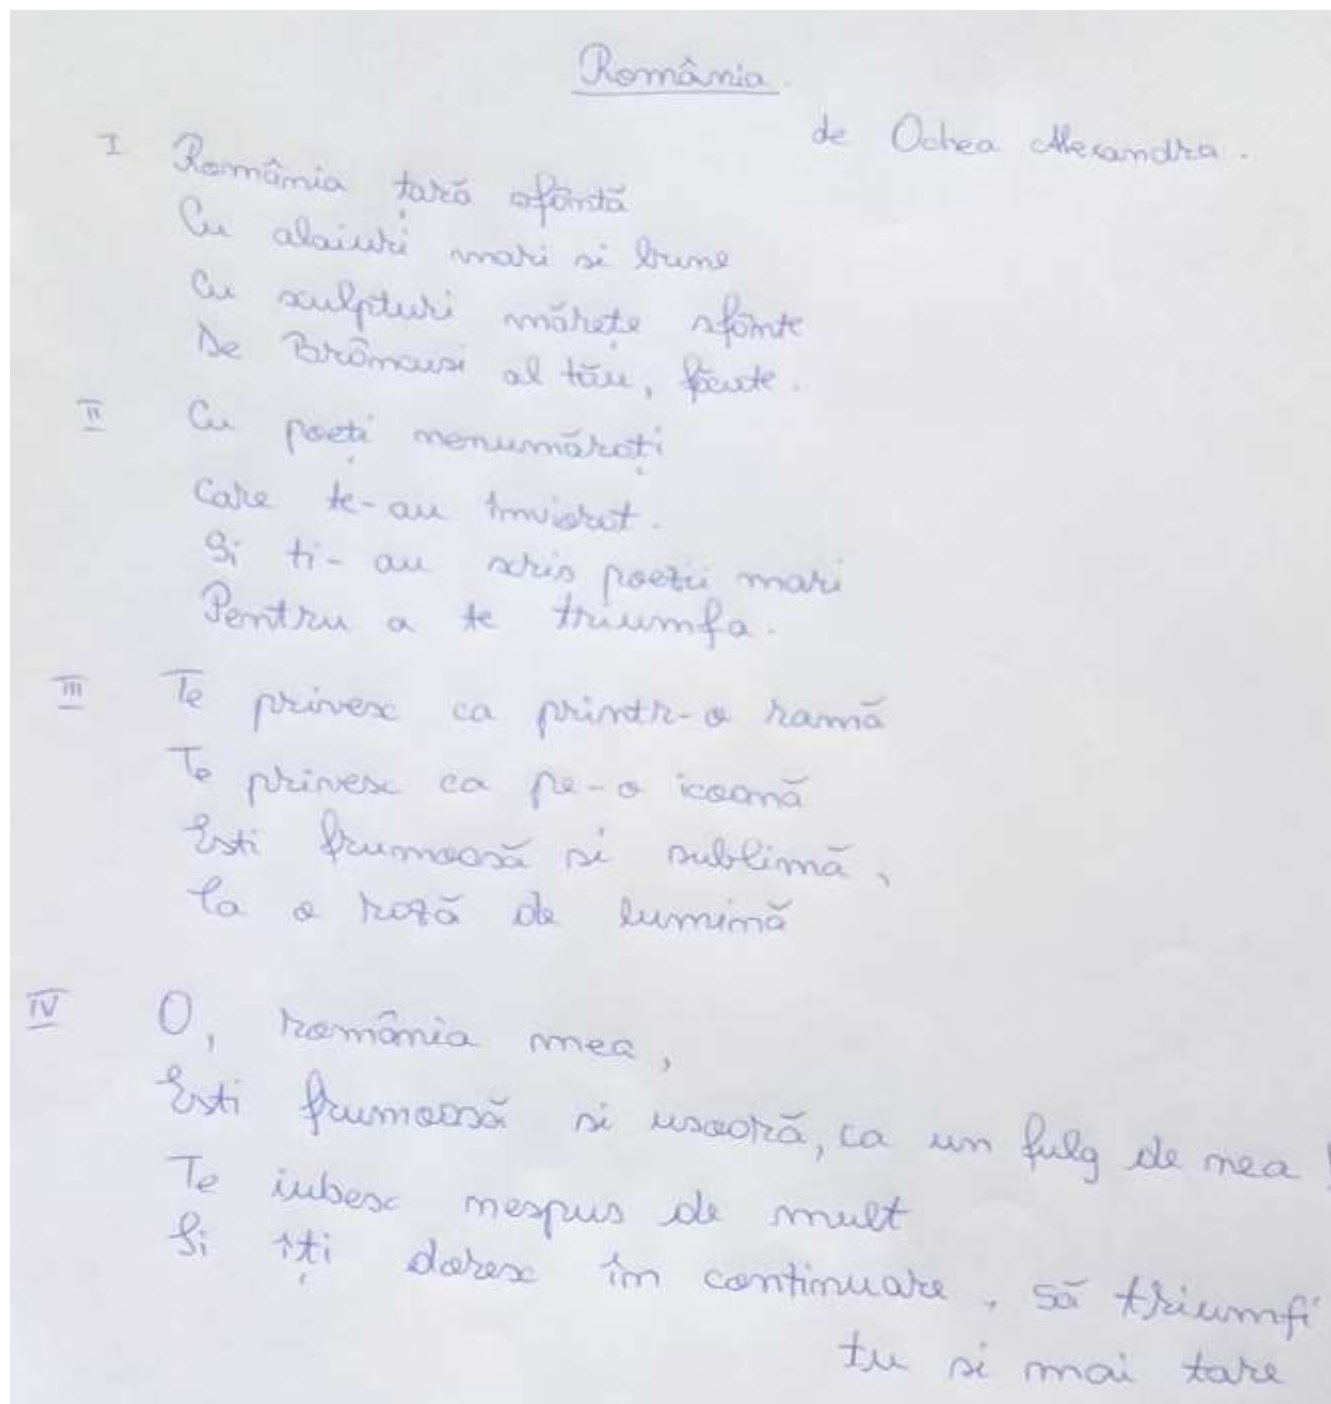 România
de Ochea Alexandra.
I România țară sfântă
Cu alaiuri mari si brune
Cu sculpturi mărețe sfinte
De Brâncusi al tău, făcute.
II Cu poeți nenumărați
Care te-au înviorat.
Si ti-au scris poezii mari
Pentru a te triumfa.
III Te privesc ca printr-o ramă
Te privesc ca pe-o icoană
Esti frumoasă si sublimă,
Ca o rază de lumină
IV O, românia mea,
Esti frumoasă si usoară, ca un fulg de nea!
Te iubesc nespus de mult
Si iți doresc în continuare, să triumfi
tu si mai tare